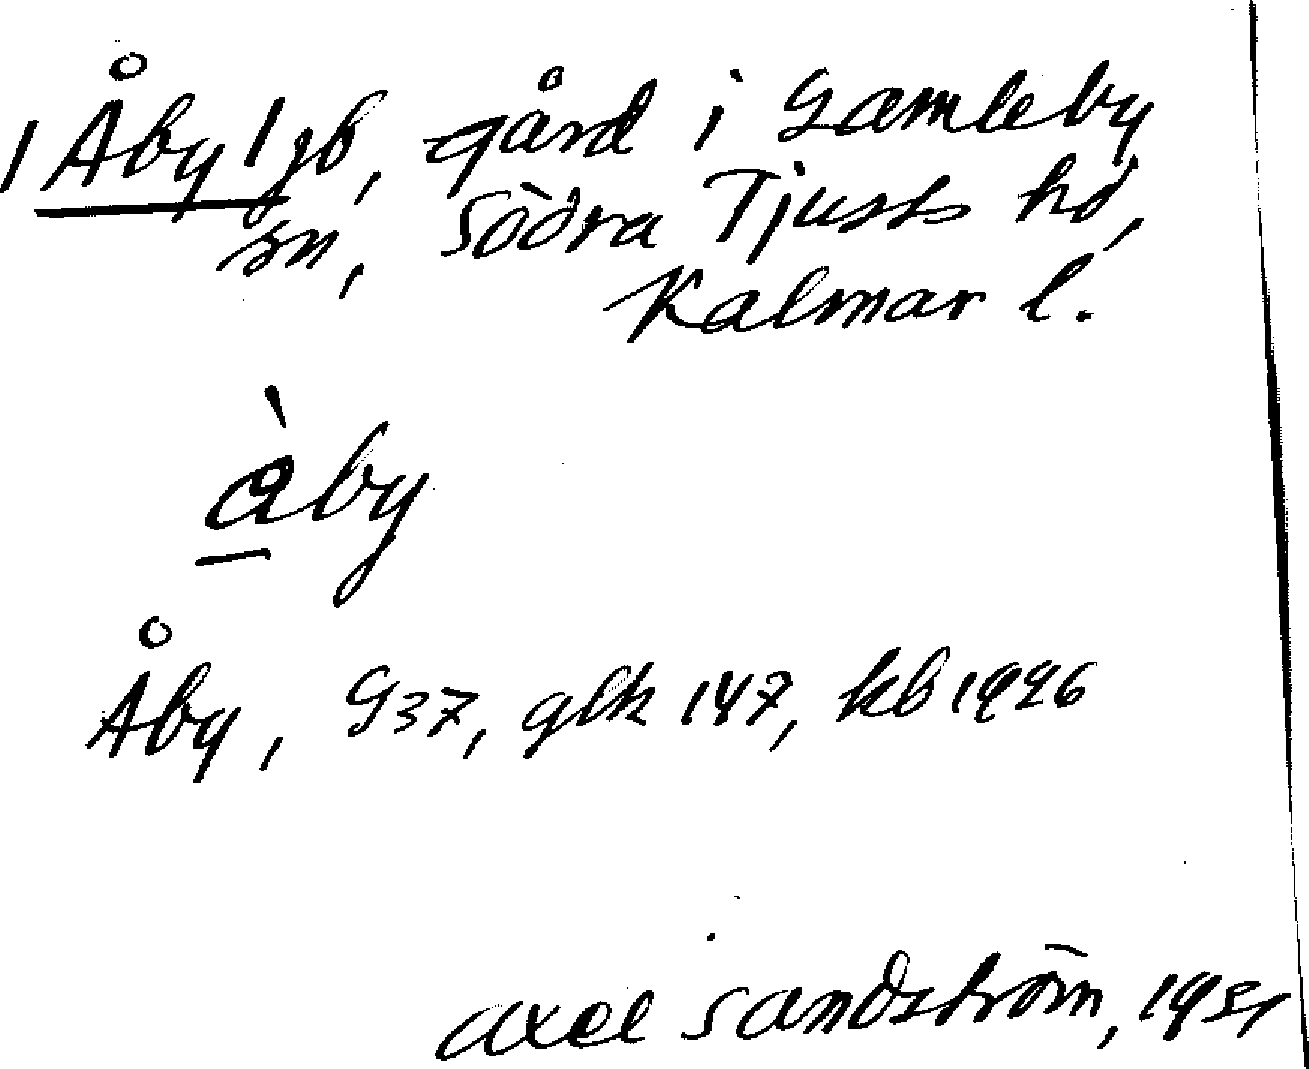 /Åby/ jb, gård i Gamleby
sn, Södra Tjusts hd,
Kalmar l.
åby
Åby, G37, glk 147, kb 1926
Axel Sandström, 1951